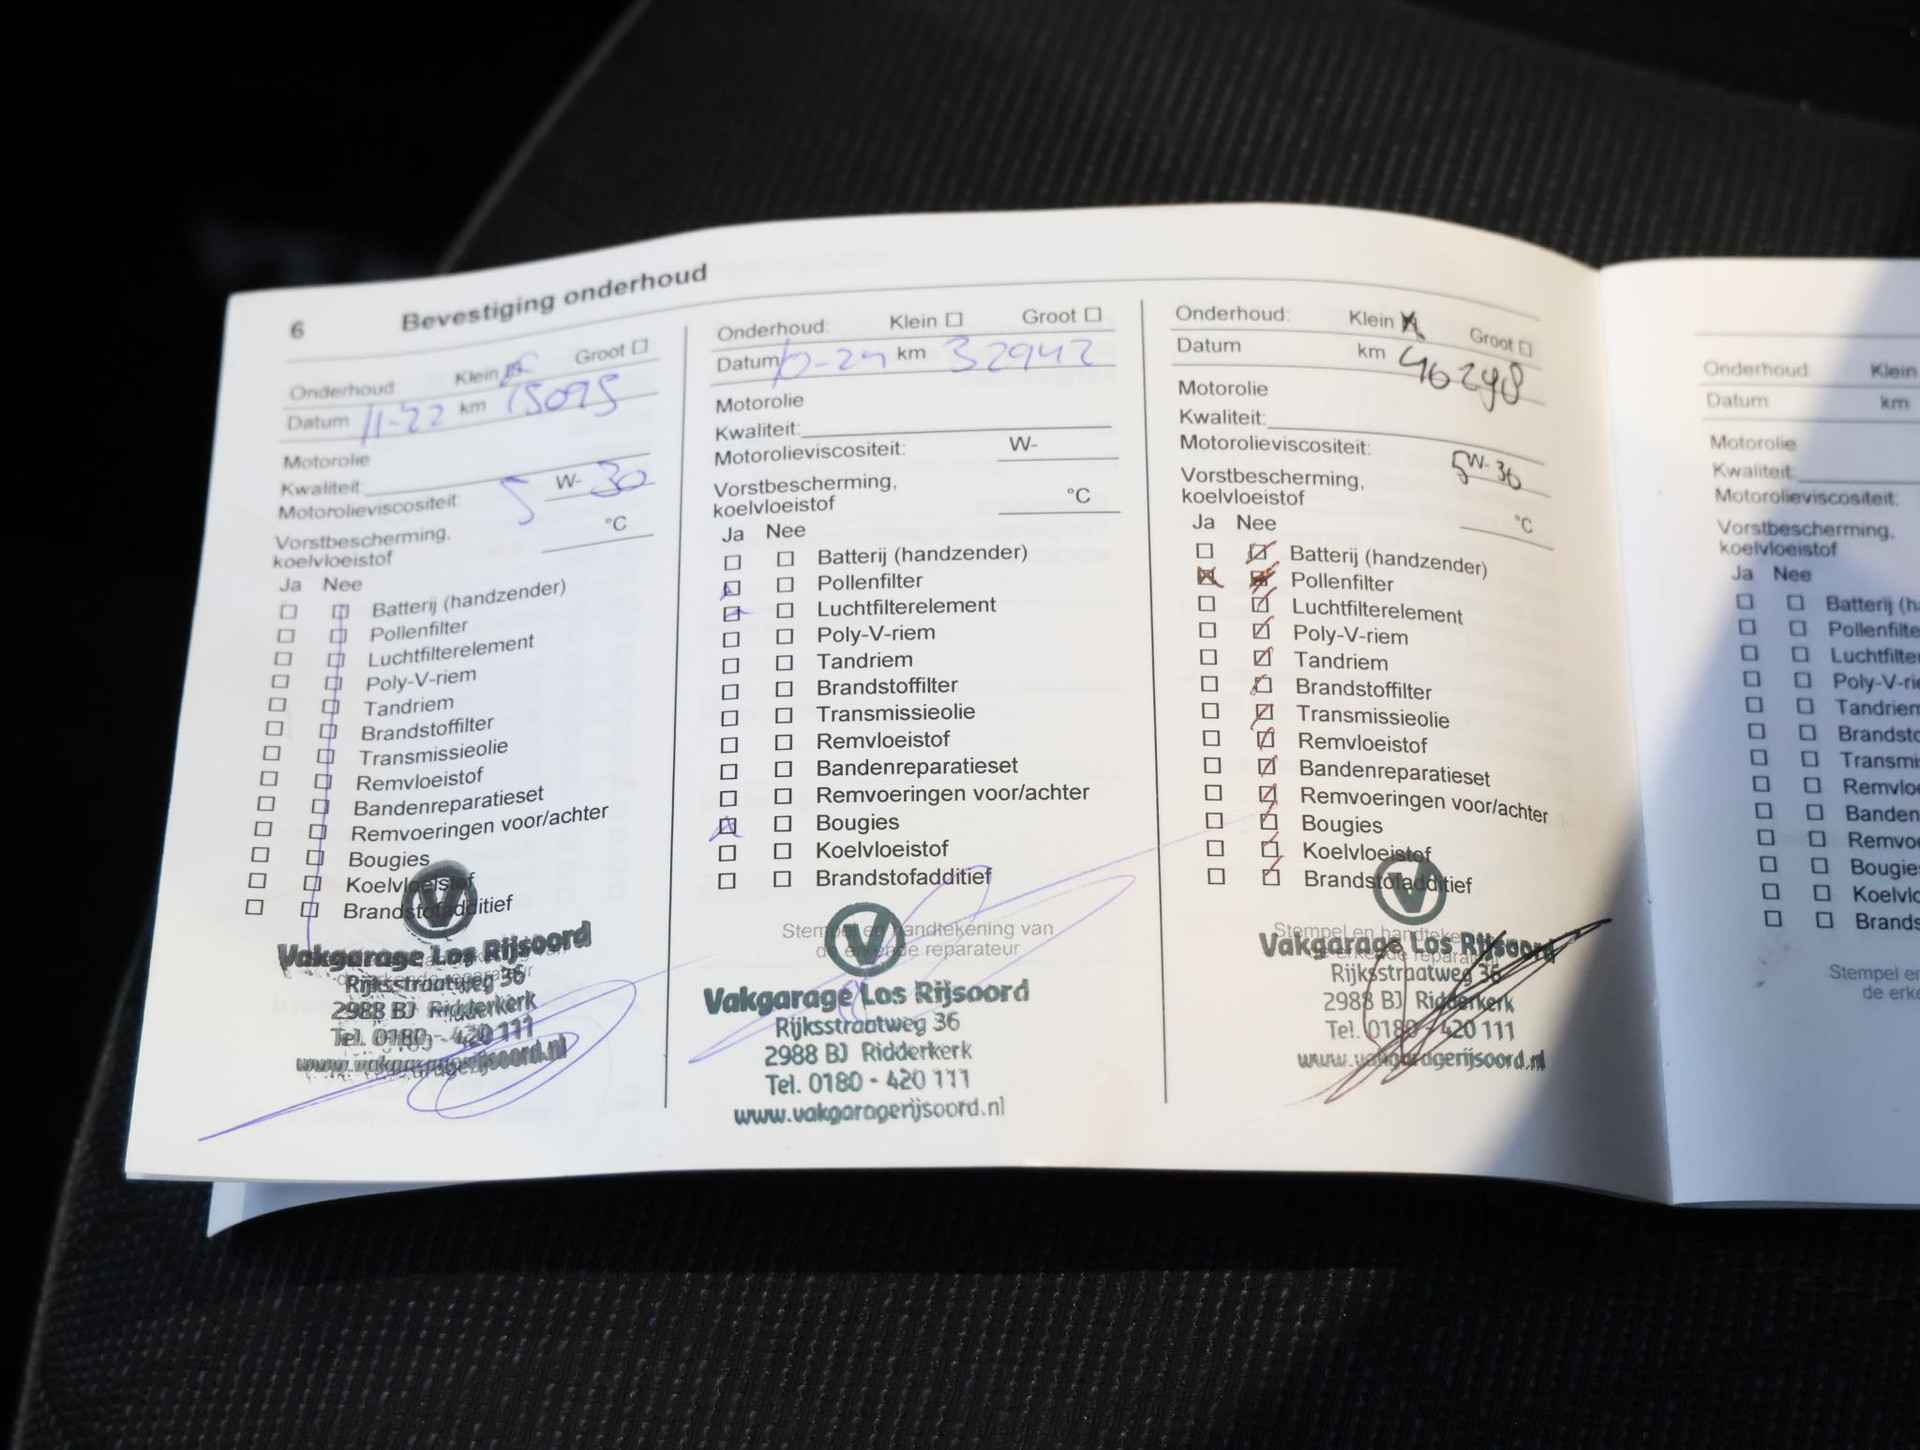 6 Bevestiging onderhoud
Onderhoud: Klein Groot
Datum 11-22 km 15095
Motorolie
Kwaliteit:
Motorolieviscositeit: 5 W- 30
Vorstbescherming,
koelvloeistof °C
Ja Nee
Batterij (handzender)
Pollenfilter
Luchtfilterelement
Poly-V-riem
Tandriem
Brandstoffilter
Transmissieolie
Remvloeistof
Bandenreparatieset
Remvoeringen voor/achter
Bougies
Koelvloeistof
Brandstofadditief
Vakgarage Los Rijsoord
Rijksstraatweg 36
2988 BJ Ridderkerk
Tel. 0180 - 420 111
www.vakgaragerijsoord.nl
Onderhoud: Klein Groot
Datum km 32942
Motorolie
Kwaliteit:
Motorolieviscositeit: W-
Vorstbescherming,
koelvloeistof °C
Ja Nee
Batterij (handzender)
Pollenfilter
Luchtfilterelement
Poly-V-riem
Tandriem
Brandstoffilter
Transmissieolie
Remvloeistof
Bandenreparatieset
Remvoeringen voor/achter
Bougies
Koelvloeistof
Brandstofadditief
Stempel en handtekening van
de erkende reparateur
Vakgarage Los Rijsoord
Rijksstraatweg 36
2988 BJ Ridderkerk
Tel. 0180 - 420 111
www.vakgaragerijsoord.nl
Onderhoud: Klein Groot
Datum km 46298
Motorolie
Kwaliteit:
Motorolieviscositeit: 5W-30
Vorstbescherming,
koelvloeistof °C
Ja Nee
Batterij (handzender)
Pollenfilter
Luchtfilterelement
Poly-V-riem
Tandriem
Brandstoffilter
Transmissieolie
Remvloeistof
Bandenreparatieset
Remvoeringen voor/achter
Bougies
Koelvloeistof
Brandstofadditief
Stempel en handteke
erkende reparat
Vakgarage Los Rijsoord
Rijksstraatweg 36
2988 BJ Ridderkerk
Tel. 0180 - 420 111
www.vakgaragerijsoord.nl
Onderhoud: Klein
Datum km
Motorolie
Kwaliteit:
Motorolieviscositeit:
Vorstbescherming,
koelvloeistof
Ja Nee
Batterij (ha
Pollenfilte
Luchtfilte
Poly-V-rie
Tandriem
Brandsto
Transmis
Remvloe
Banden
Remvo
Bougies
Koelvlo
Brands
Stempel en
de erke